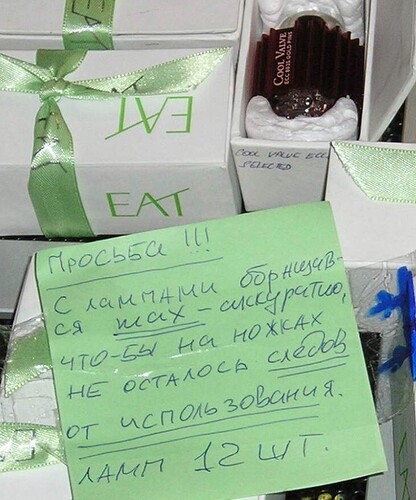 EAT
EAT
COOL VALVE
ECC 8833 GOLD PINS
COOL VALVE ECC
SELECTED
ПРОСЬБА !!!
С ЛАМПАМИ обращав-
ся мах - аккуратно,
что-бы на ножках
не осталось следов
от использования.
ЛАМП 12 ШТ.